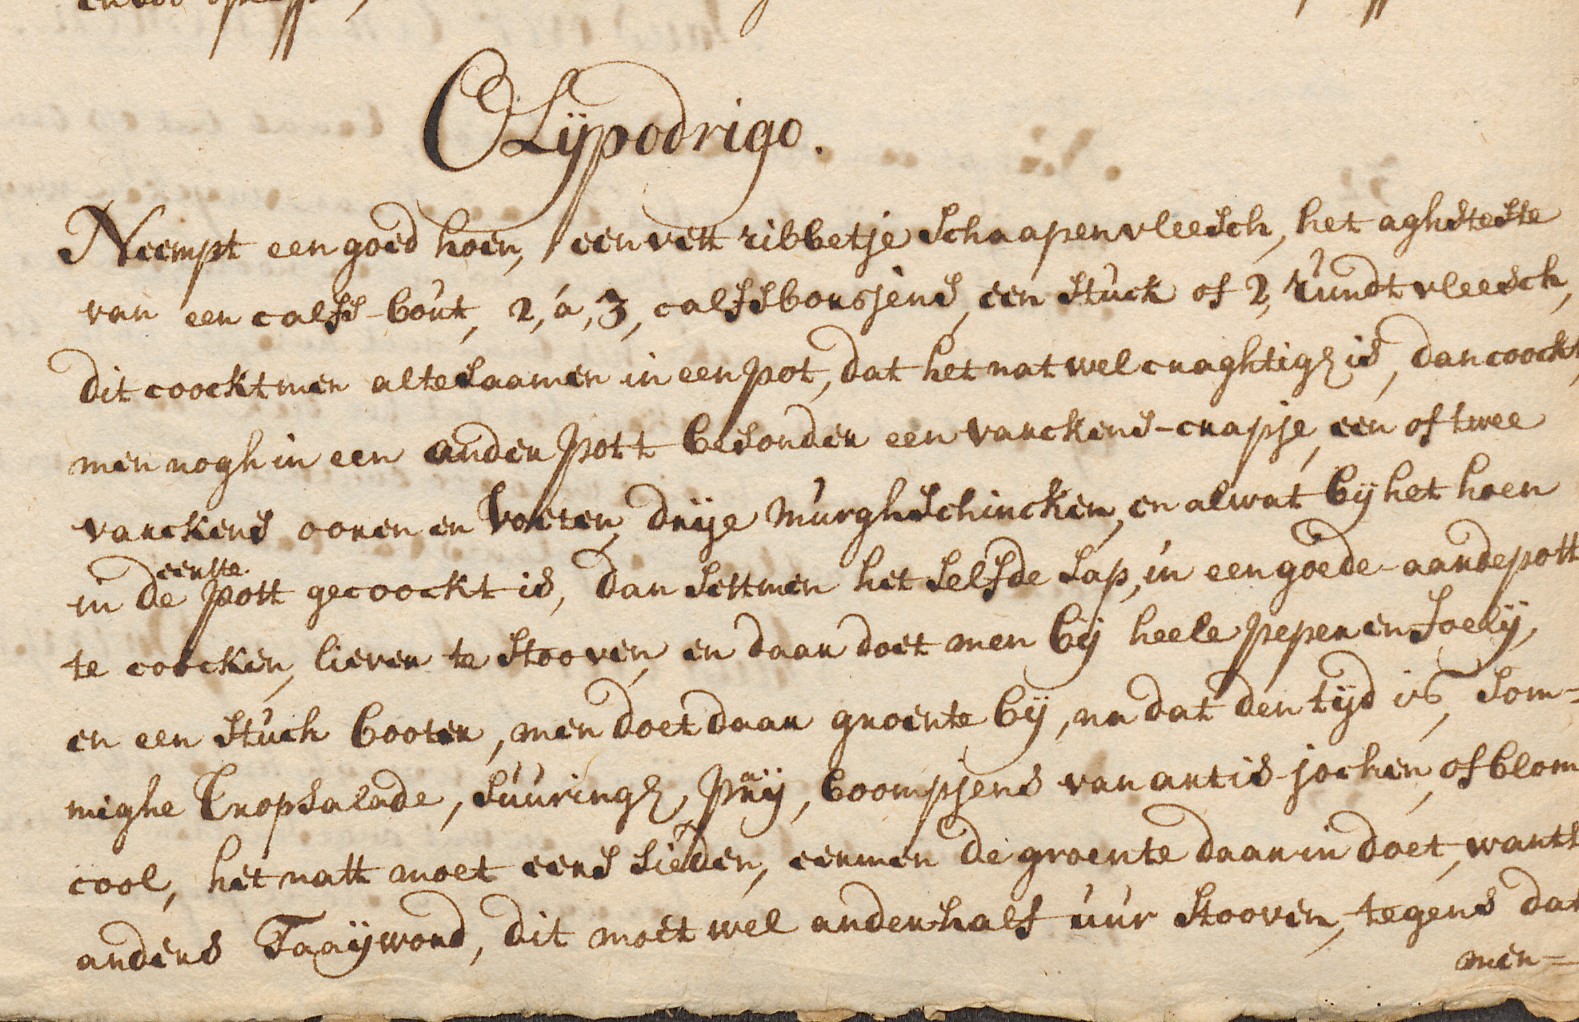 OLÿpodrigo.
Neempt een goed hoen, een vett ribbetje Schaapenvleesch, het aghsteste
van een calfs-bout, 2, á, 3, calfsborsjens, een stuck of 2, rundtvleesch,
dit coockt men altesaamen in een pot, dat het nat wel craghtigh is, dan coockt,
men nogh in een ander pott besonder een varckens-crapje, een of twee
varckens ooren en voeten, drije murghschincken, en al wat bij het hoen
in de eerste pott gecoockt is, dan settmen het selfde sap, in een goede aardepott
te coocken, liever te stooven, en daar doet men bij heele peper en foelij,
en een stuck booter, men doet daar groente bij, na dat den tijd is, som-
mighe cropsalade, suuringh, prij, boompjens van artis-jocken, of blom
cool, het natt moet eens sieden, eermen de groente daar in doet, want
anders Taaij word, dit moet wel anderhalf uur stooven, tegens dat
men=